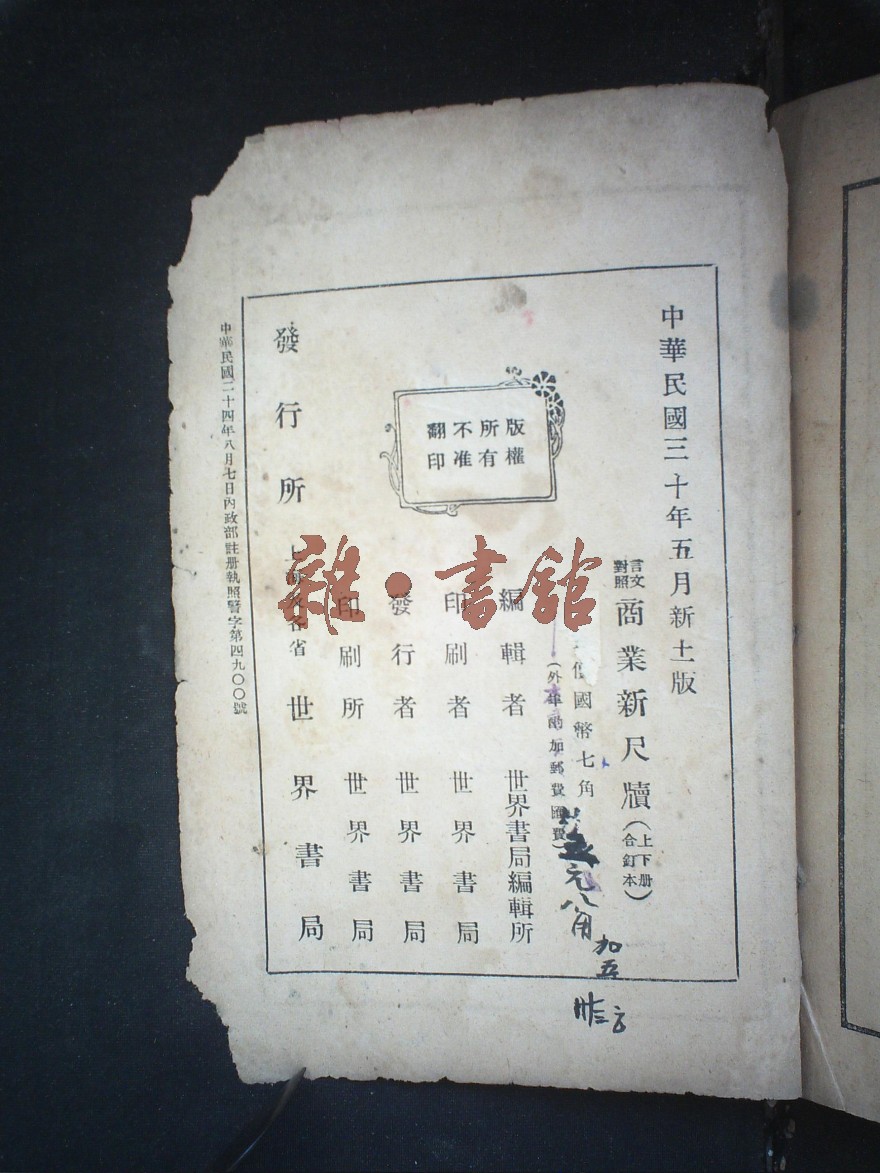 中華民國三十年五月新十一版
言文對照 商業新尺牘(上下册合訂本)
價國幣七角
(外埠酌加郵費匯費)
元八角
加五
編輯者 世界書局編輯所
印刷者 世界書局
發行者 世界書局
印刷所 世界書局
版權
所有
不准
翻印
發行所 各省 世界書局
中華民國二十四年八月七日內政部註册執照警字第四九〇〇號
雜·書館